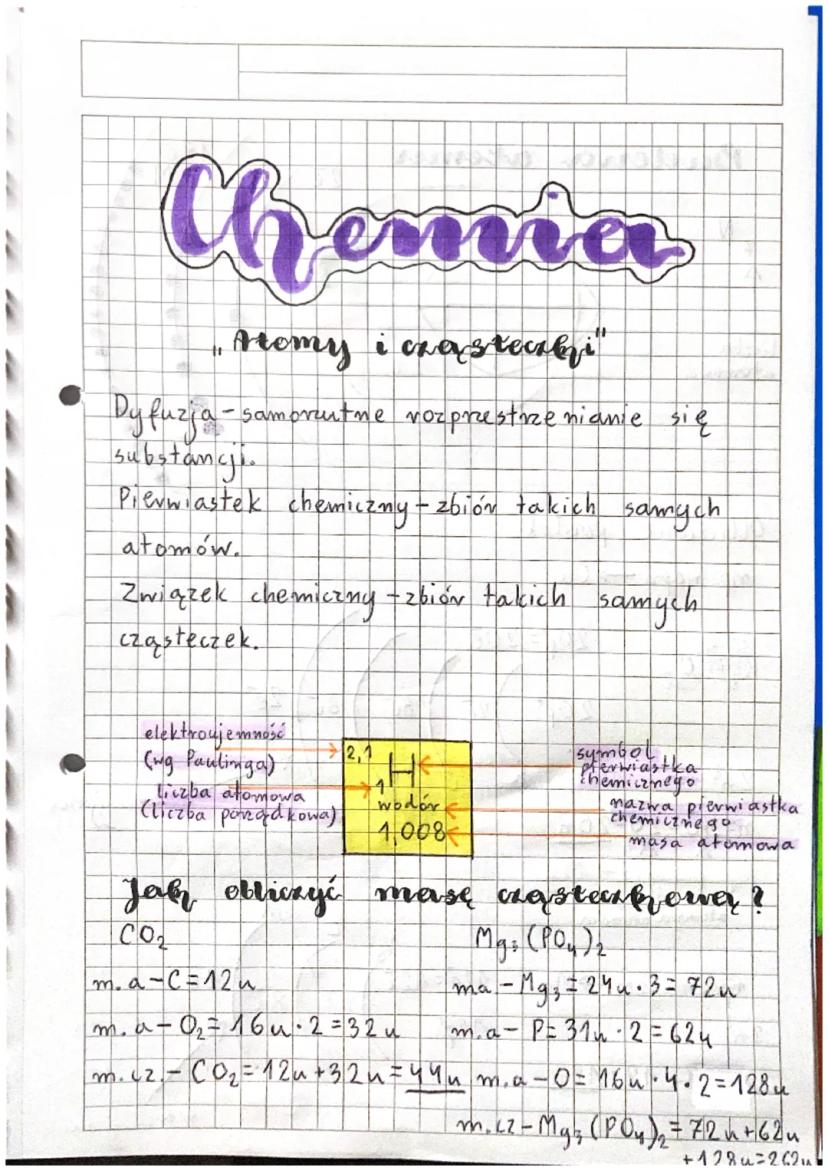 Chemia
„Atomy i cząsteczki"
Dyfuzja - samorzutne rozprzestrzenianie się
substancji.
Pierwiastek chemiczny - zbiór takich samych
atomów.
Związek chemiczny - zbiór takich samych
cząsteczek.
elektroujemność
(wg Paulinga)
liczba atomowa
(liczba porządkowa)
2,1
H
1
wodór
1,008
symbol
pierwiastka
chemicznego
nazwa pierwiastka
chemicznego
masa atomowa
Jak obliczyć masę cząsteczkową?
CO₂
m.a - C = 12u
m.a - O₂ = 16u · 2 = 32u
m.cz. - CO₂ = 12u + 32u = 44u
Mg₃(PO₄)₂
ma - Mg₃ = 24u · 3 = 72u
m.a - P = 31u · 2 = 62u
m.a - O = 16u · 4 · 2 = 128u
m.cz - Mg₃(PO₄)₂ = 72u + 62u
+ 128u = 262u